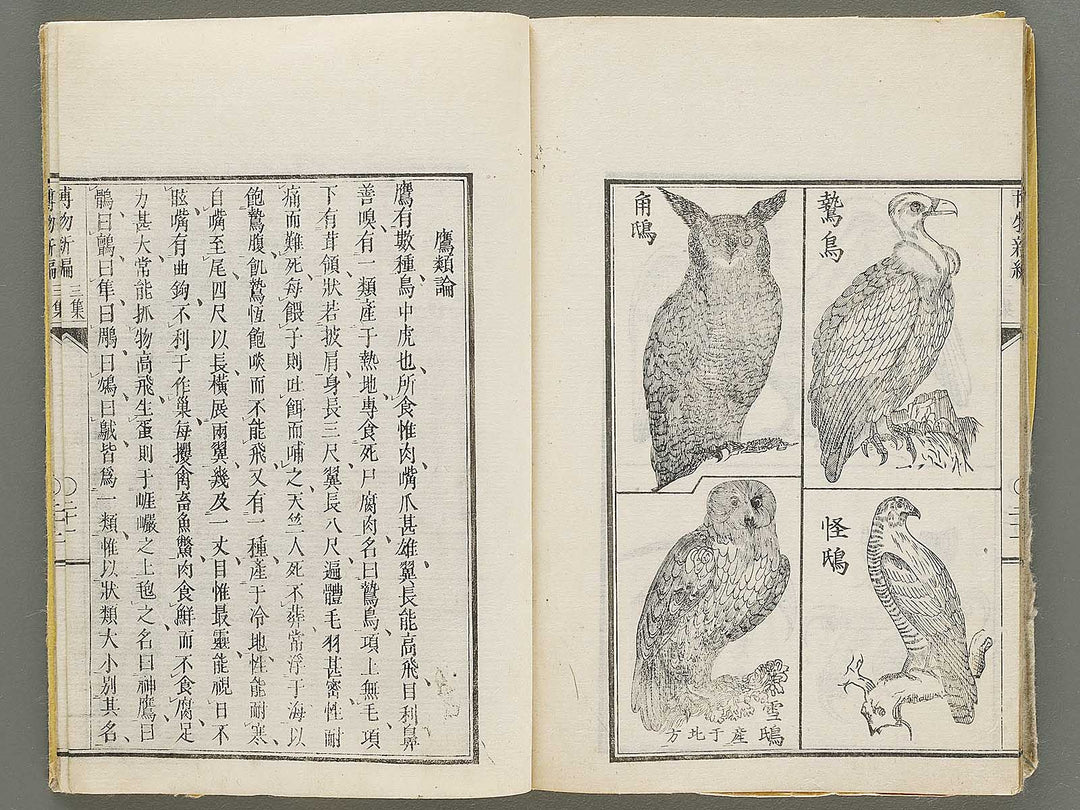 博物新編
鷙鳥
角鴟
怪鴟
雪鴟
產于北方
鷹類論
鷹有數種鳥中虎也所食惟肉嘴爪甚雄翼長能高飛目利鼻
善嗅有一類產于熱地專食死尸腐肉名曰鷙鳥項上無毛項
下有茸領狀若披肩身長三尺翼長八尺遍體毛羽甚密性耐
痛而難死每餵子則吐餌而哺之天竺人死不葬常浮于海以
飽鷙腹飢鷙恆飽啖而不能飛又有一種產于冷地性能耐寒
自嘴至尾四尺以長橫展兩翼幾及一丈目惟最靈能視日不
眩嘴有曲鉤不利于作巢每攫禽畜魚鱉肉食鮮而不食腐足
力甚大常能抓物高飛生蛋則于崕巖之上毑之名曰神鷹曰
鶻曰鸇曰隼曰鵰曰鴆曰鷲皆爲一類惟以狀類大小別其名
博物新編 三集 二十一
博物新編 三集